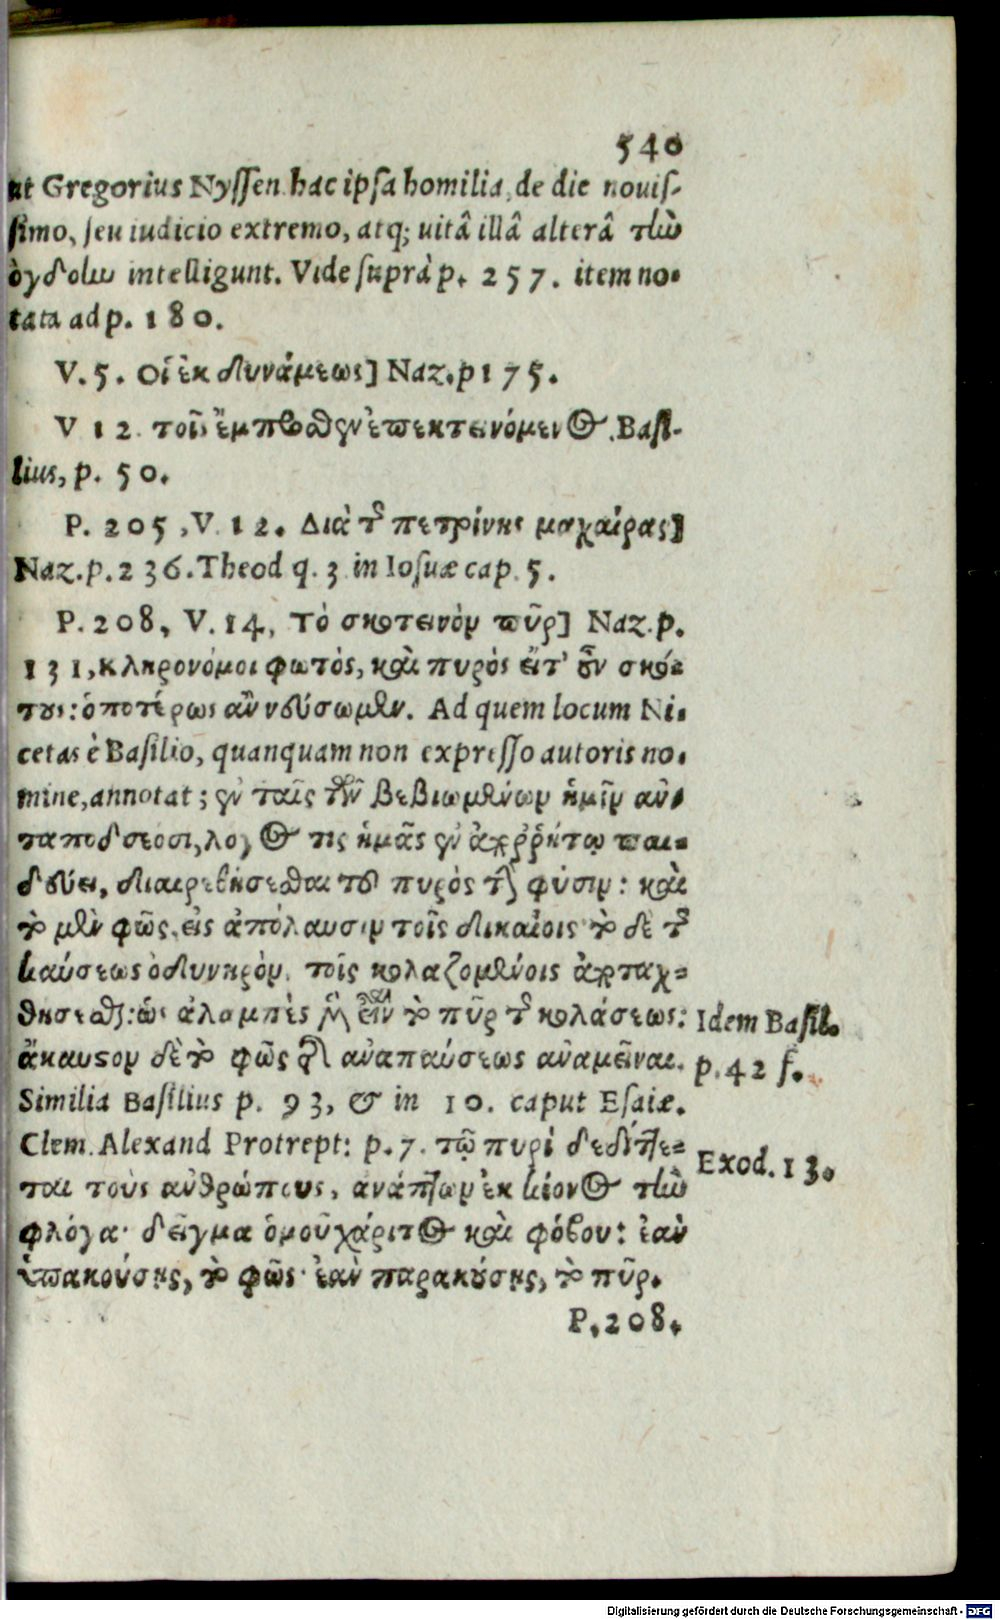 540
ut Gregorius Nyssen hac ipsa homilia, de die novis-
simo, seu iudicio extremo, atq; uitâ illâ alterâ τὴν
ὀγδοὴν intelligunt. Vide suprà p. 257. item no-
tata ad p. 180.
V. 5. Οἱ ἐκ δυνάμεως] Naz. p 175.
V 12. τοῖς ἔμπροσθεν ἐπεκτεινόμενος. Basi-
lius, p. 50.
P. 205, V. 12. Διὰ τῆς πετρίνης μαχαίρας]
Naz. p. 236. Theod q. 3 in Iosuæ cap. 5.
P. 208, V. 14, Τὸ σκοτεινὸν πῦρ] Naz. p.
131, κληρονόμοι φωτὸς, καὶ πυρὸς εἴτ' οὖν σκό-
τους: ὁποτέρως ἂν νεύσωμεν. Ad quem locum Ni-
cetas è Basilio, quanquam non expresso autoris no-
mine, annotat; ἐν ταῖς τῶν βεβιωμένων ἡμῖν ἀν-
ταποδόσεσι, λόγος τις ἡμᾶς ἐν ἀπορρήτῳ παι-
δεύει, διαιρεθήσεσθαι τοῦ πυρὸς τὴν φύσιν: καὶ
τὸ μὲν φῶς, εἰς ἀπόλαυσιν τοῖς δικαίοις τὸ δὲ τῆς
καύσεως ὀδυνηρὸν, τοῖς κολαζομένοις ἀποταχ-
θήσεσθαι: ὡς ἀλαμπὲς μὲν εἶναι τὸ πῦρ τῆς κολάσεως:
ἄκαυστον δὲ τὸ φῶς τῆς ἀναπαύσεως ἀναμεῖναι.
Similia Basilius p. 93, & in 10. caput Esaiæ.
Clem. Alexand Protrept: p. 7. τῷ πυρὶ δεδίττε-
ται τοὺς ἀνθρώπους, ἀνάπτων ἐκ κίονος τὴν
φλόγα· δεῖγμα ὁμοῦ χάριτος καὶ φόβου: ἐὰν
ὑπακούσῃς, τὸ φῶς· ἐὰν παρακούσῃς, τὸ πῦρ.
P. 208.
Idem Basil.
p. 42 f.
Exod. 13.
Digitalisierung gefördert durch die Deutsche Forschungsgemeinschaft - DFG